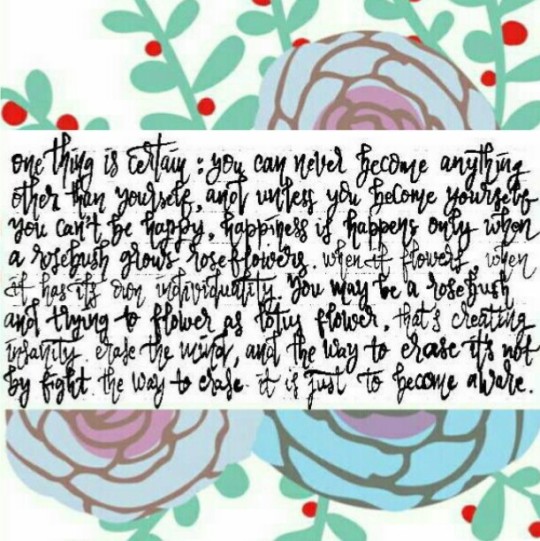 one thing is certain : you can never become anything
other than yourself, and unless you become yourself
you can't be happy, happiness is happens only when
a rosebush glows rose flowers. when it flowers, when
it has its own individuality. you may be a rosebush
and trying to flower as lotus flower, that's creating
insanity. erase the mind, and the way to erase it's not
by fight. the way to erase it is just to become aware.